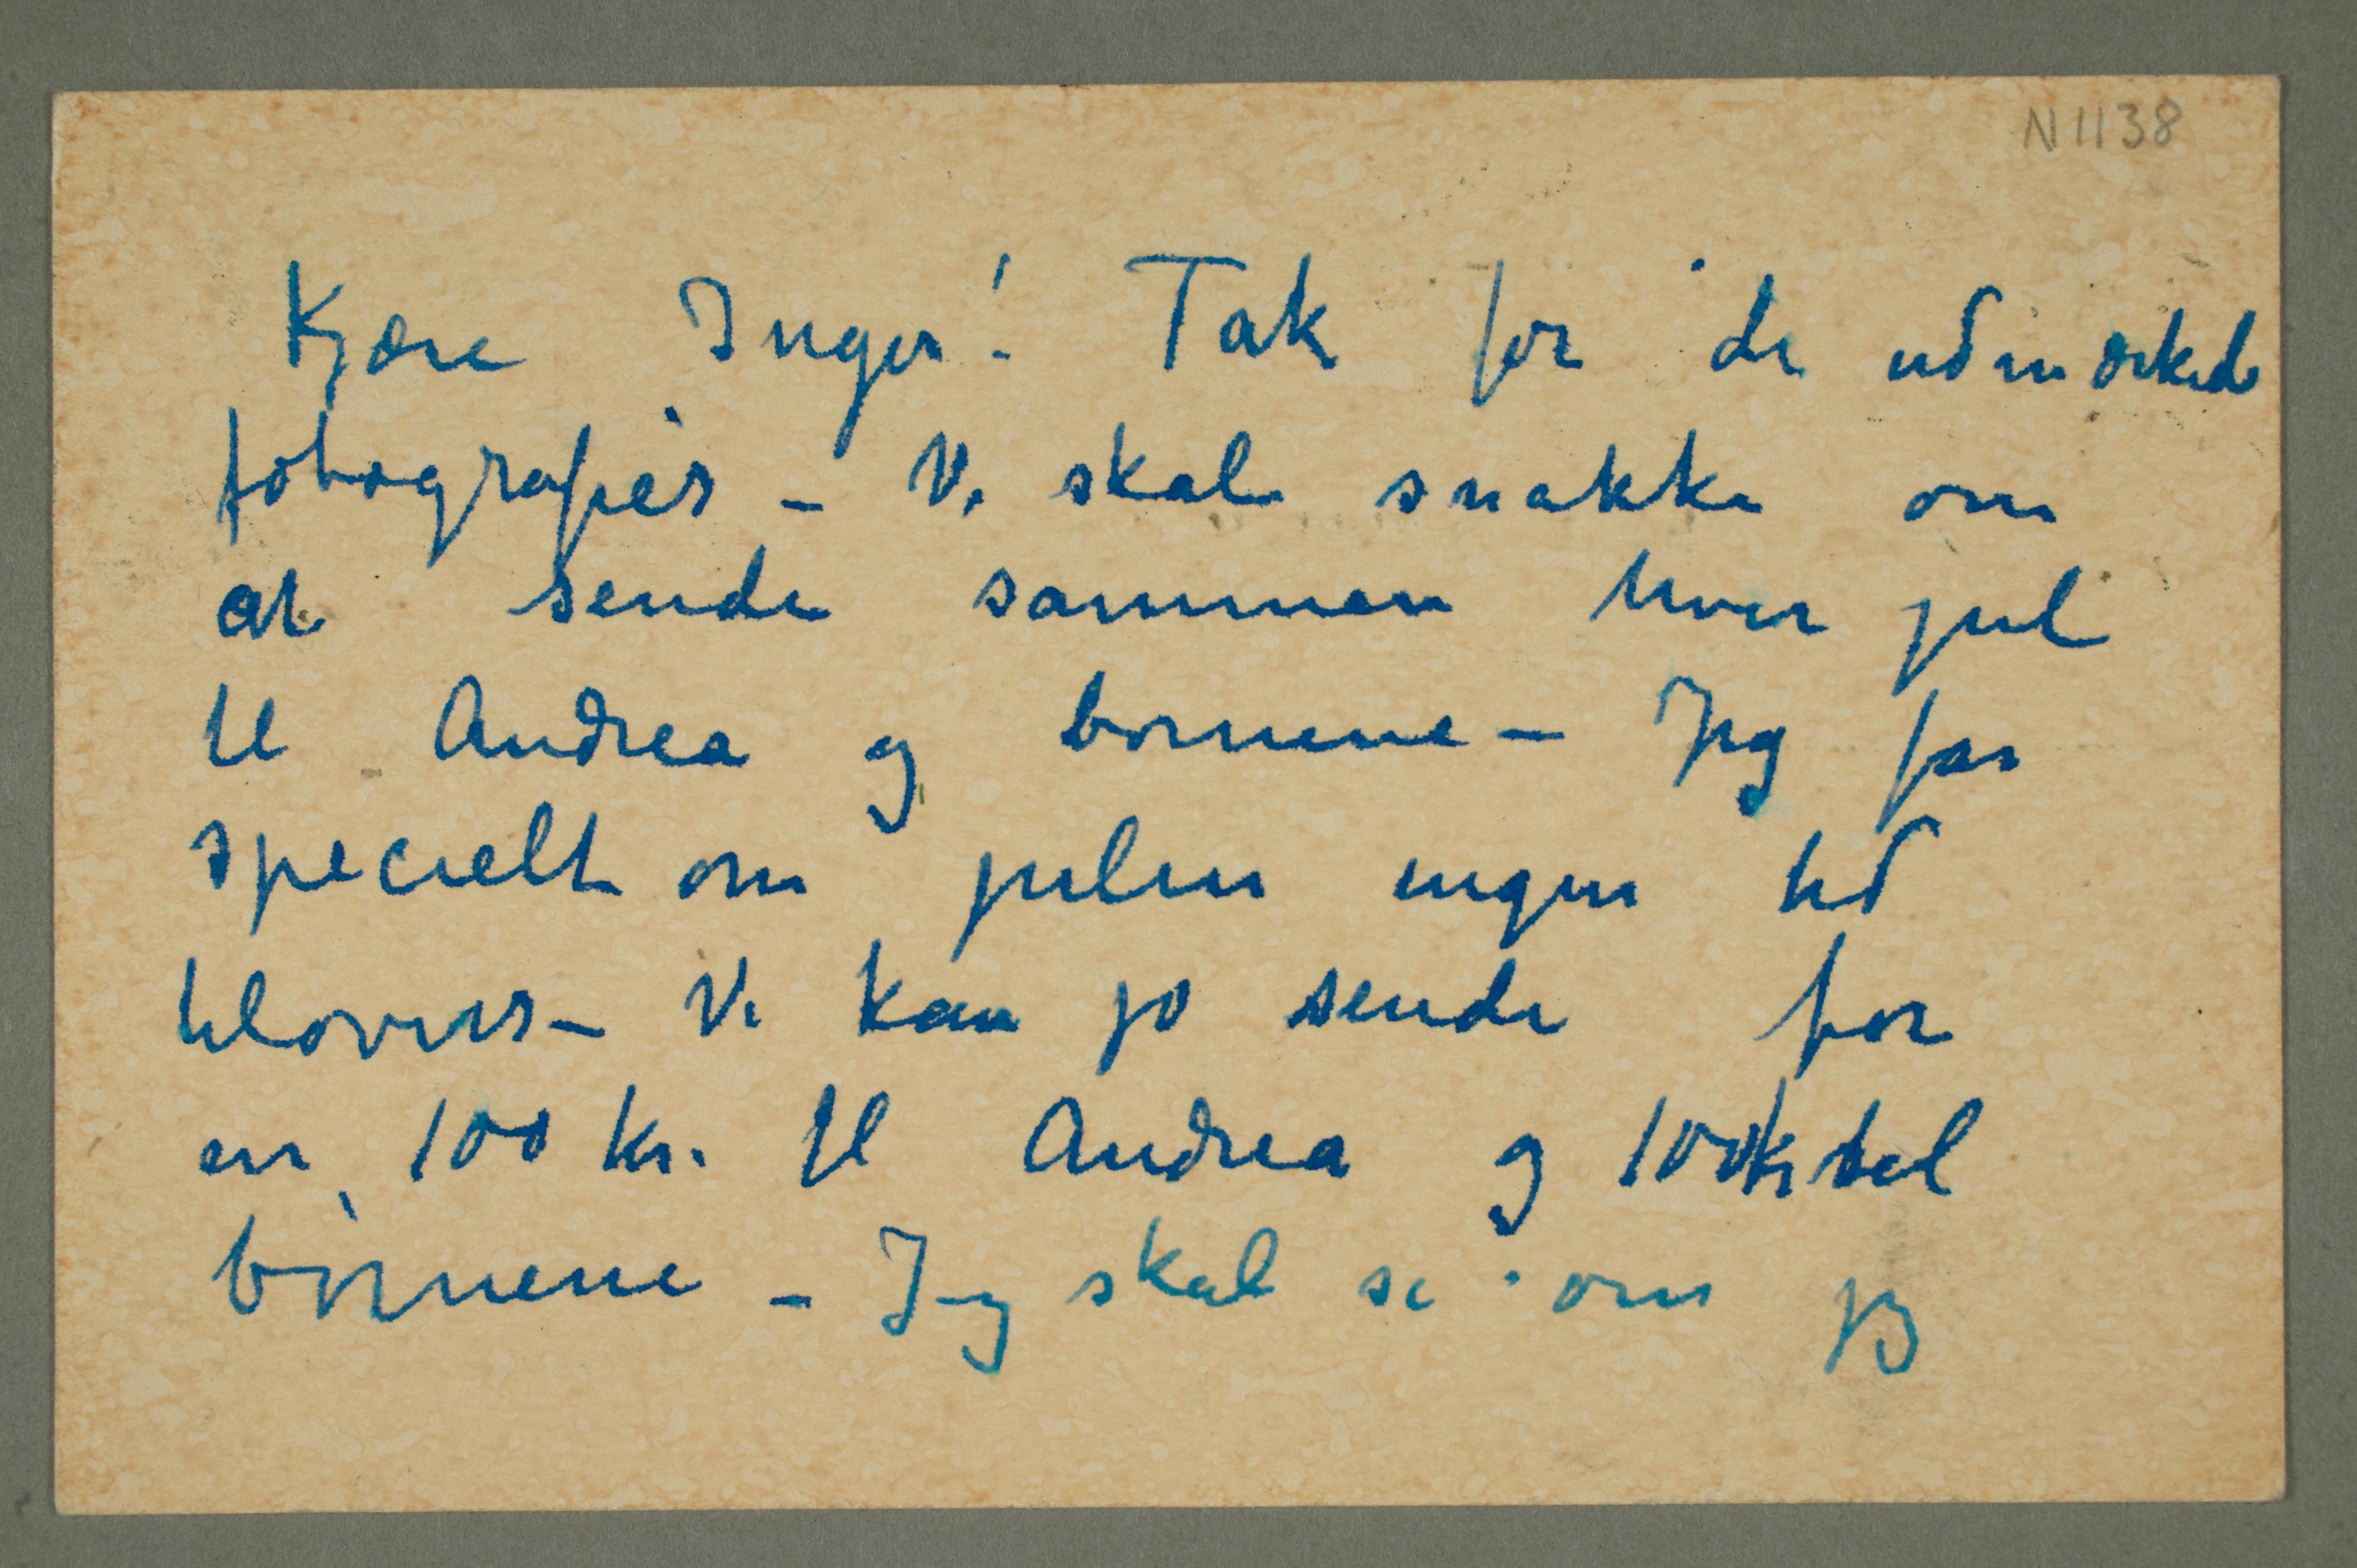 N 1138
Kjære Inger! Tak for de udmærkede
fotografier – Vi skal snakke om
at sende sammen hver jul
til Andrea og bornene – Jeg får
specielt om julen ingen tid
tilovers – Vi kan jo sende for
en 100 kr. til Andrea og 100 kr til
börnene – Jeg skal se om jeg